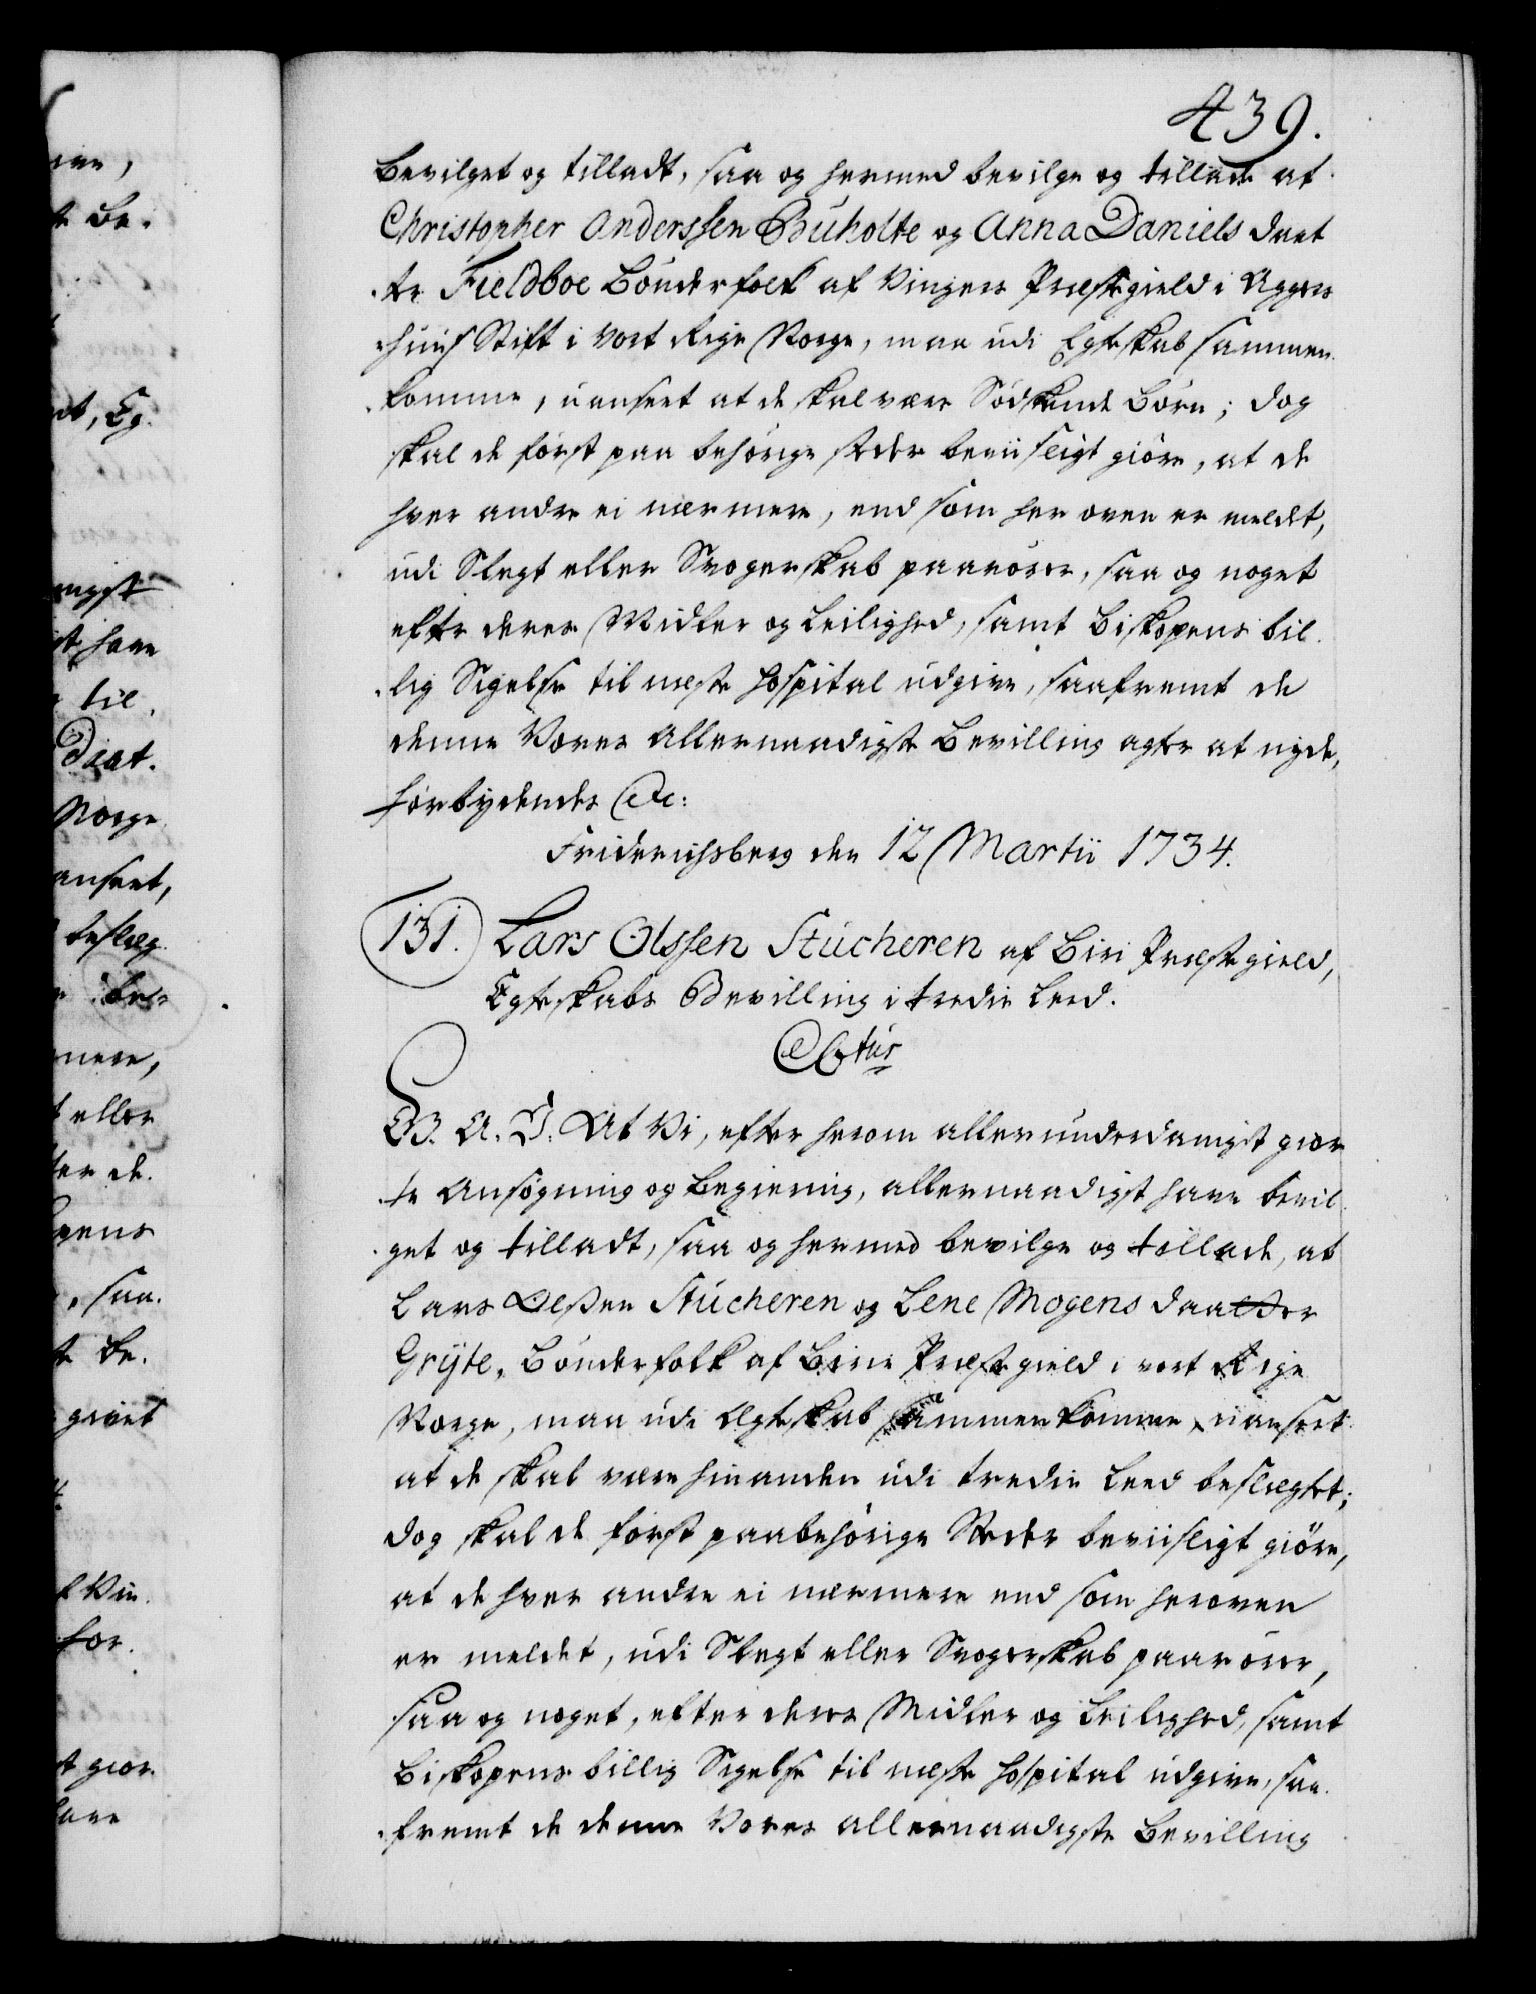 439.
bevilget og tilladt, saa og hermed bevilge og tillade at
Christopher Anderssen Buholte og Anna Daniels daat
ter Fieldboe bønderfolk af Vingers Præstegield i Agger
huus Stift i vort Rige Norge, maa udi Egteskab sammen
komme, uanseet at de skal være Sødskende børn; dog
skal de først paa behørige steder beviisligt giøre, at de
hver andre ei nærmere, end som her oven er meldt,
udi Slegt eller Svogerskab paarører, saa og noget
efter deres Midler og Leilighed, samt Biskopens bil
lig Sigelse til neste Hospital udgive, saafremt de
denne Vores allernaadigste Bevilling agter at nyde,
forbydendes etc:
Friderichsberg den 12 Martii 1734.
131. Lars Olssen Stucheren af Biri Præstegield,
Egteskabs Bevilling i tredie Leed.
C 6tus
G. A. V. At Vi, efter herom allerunderdanigst gior
te Ansøgning og begiering, allernaadigst have bevil
get og tilladt, saa og hermed bevilge og tillade, at
Lars Olssen Stucheren og Lene Mogens daatter
Gryte, bønderfolk af Birie Præstegield i vort Rige
Norge, maa udi Egteskab sammenkomme, uanseet
at de skal være hinanden udi tredie Leed beslægtet;
dog skal de først paa behørige Steder beviisligt giøre,
at de hver andre ei nærmere end som heroven
er meldet, udi Slegt eller Svogerskab paarører,
saa og noget, efter deres Midler og Leilighed, samt
Biskopens billig Sigelse til neste Hospital udgive, saa
fremt de denne Vores allernaadigste Bevilling